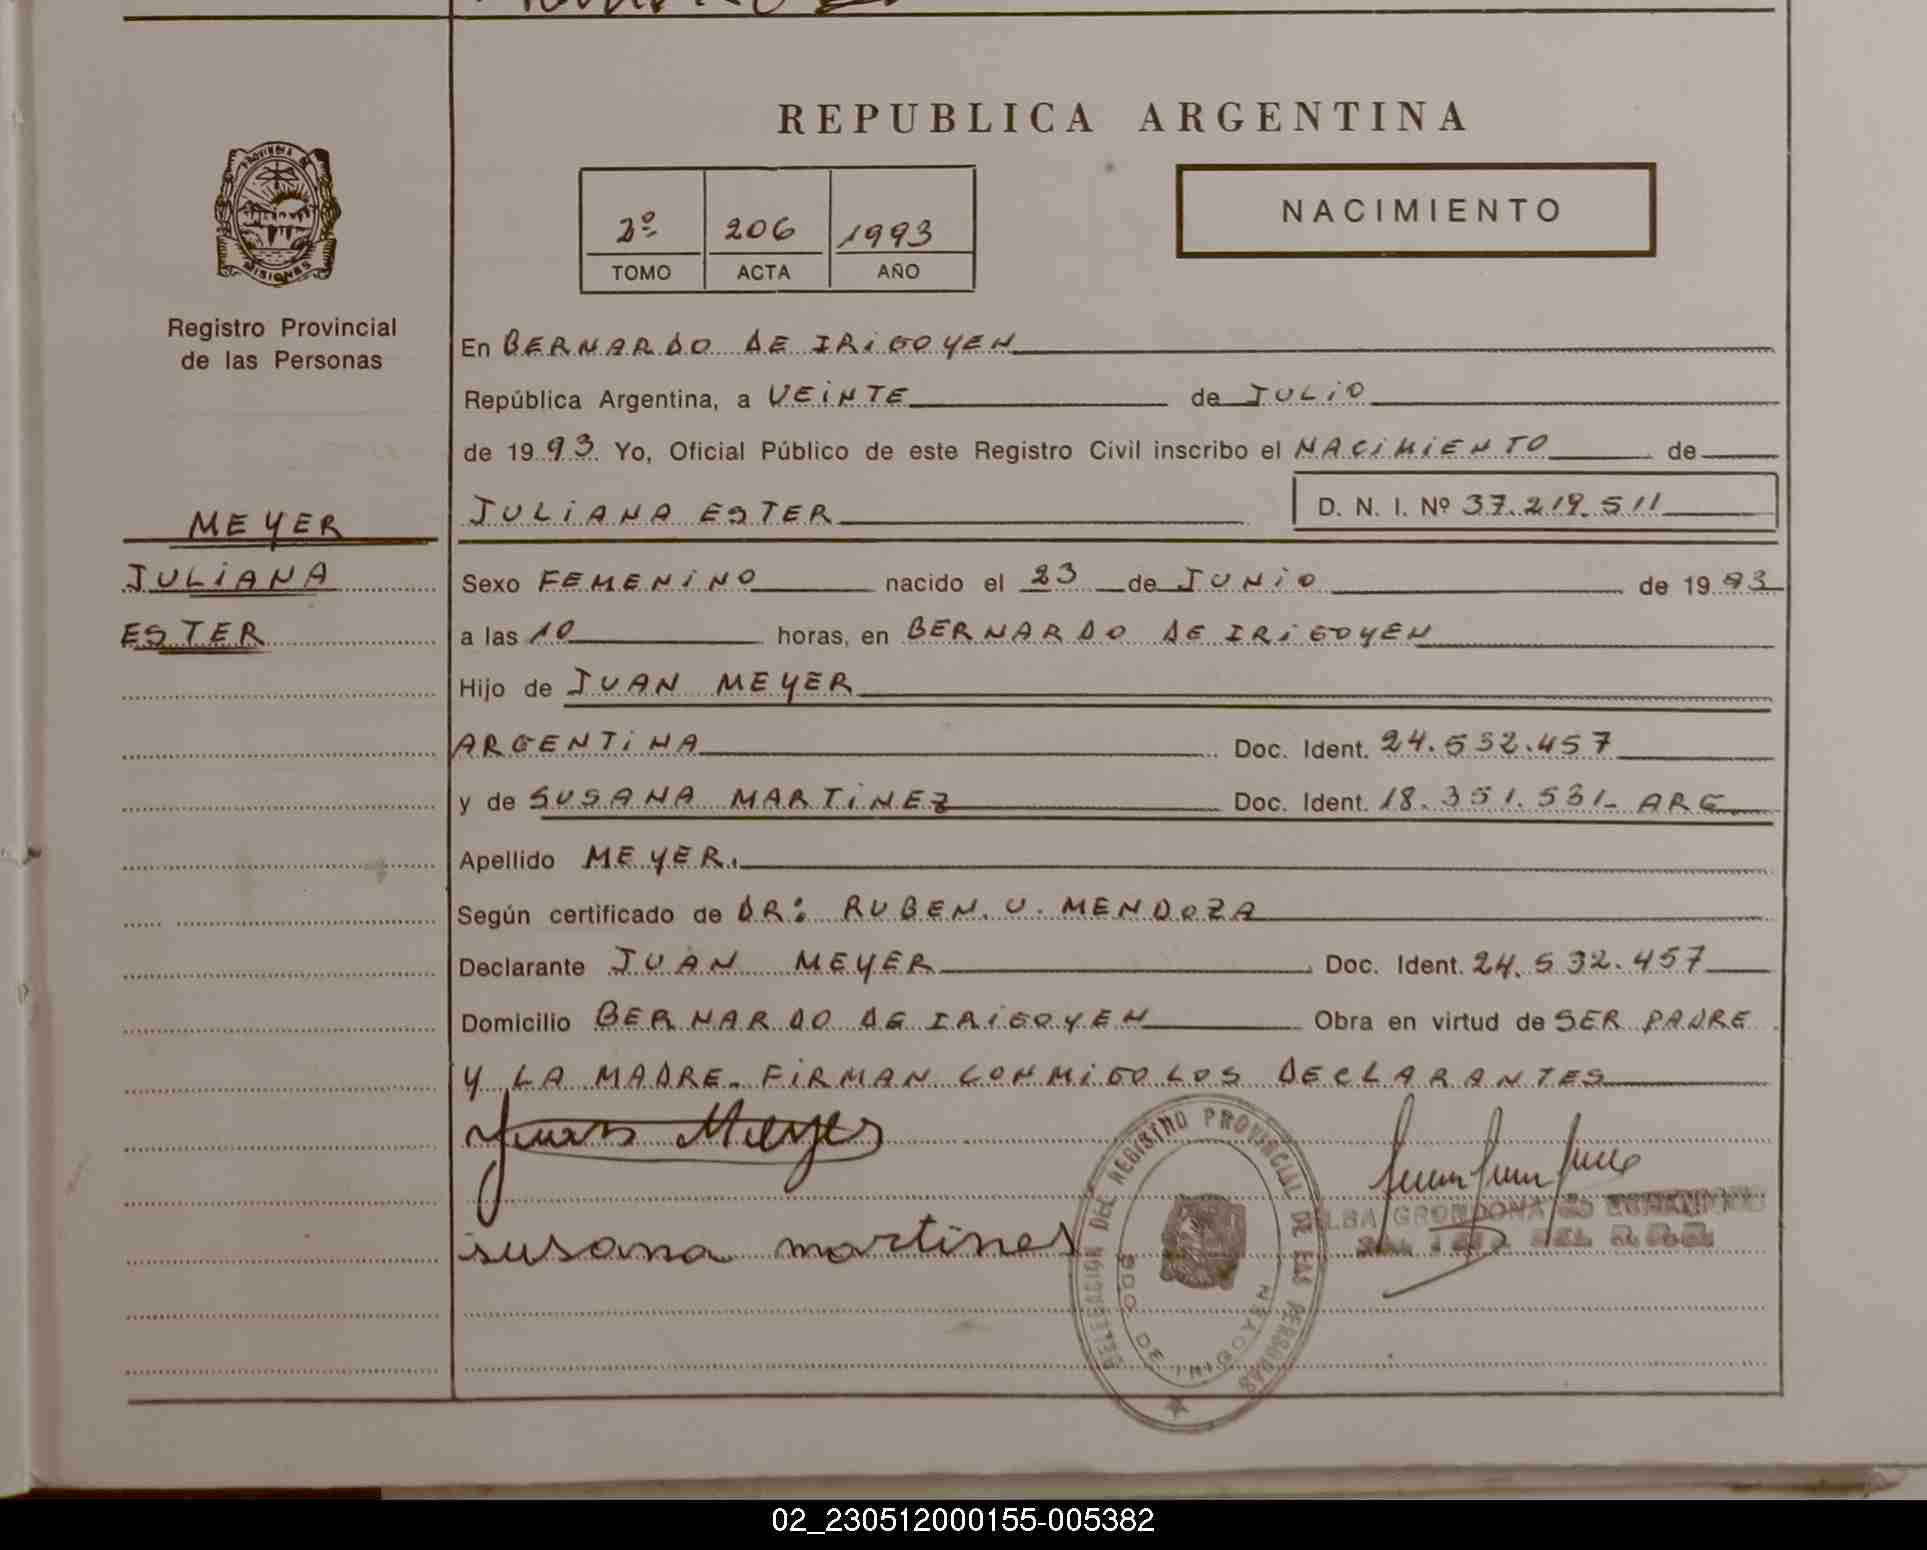 REPUBLICA ARGENTINA
PROVINCIA DE
MISIONES
Registro Provincial
de las Personas
2º 206 1993
TOMO ACTA AÑO
NACIMIENTO
En BERNARDO DE IRIGOYEN
República Argentina, a VEINTE de JULIO
de 1993 Yo, Oficial Público de este Registro Civil inscribo el NACIMIENTO de
MEYER
JULIANA ESTER D. N. I. Nº 37.219.511
JULIANA
ESTER
Sexo FEMENINO nacido el 23 de JUNIO de 1993
a las 10 horas, en BERNARDO DE IRIGOYEN
Hijo de JUAN MEYER
ARGENTINA Doc. Ident. 24.532.457
y de SUSANA MARTINEZ Doc. Ident. 18.351.531- ARG
Apellido MEYER.
Según certificado de DR: RUBEN. U. MENDOZA
Declarante JUAN MEYER Doc. Ident. 24.532.457
Domicilio BERNARDO DE IRIGOYEN Obra en virtud de SER PADRE
Y LA MADRE. FIRMAN CONMIGO LOS DECLARANTES
Juan Meyer
susana martines
DELEGACION DEL REGISTRO PROVINCIAL DE LAS PERSONAS
BDO. DE IRIGOYEN
ELBA GRONDONA DE
DEL
02_230512000155-005382